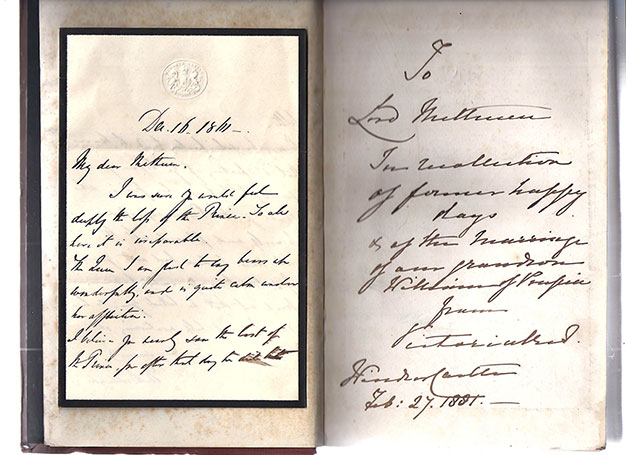 Dec. 16. 1861 –
My dear Methuen.
I was sure you would feel
deeply the loss of the Prince. To all
here it is irreparable.
The Queen I am glad to say bears it
wonderfully, and is quite calm under
her affliction.
I believe you nearly saw the last of
the Prince for after that day he
To
Lord Methuen
In recollection
of former happy
days
& of the Marriage
of our grandson
William of Prussia
from
Victoria
Windsor Castle
Feb: 27. 1881. —